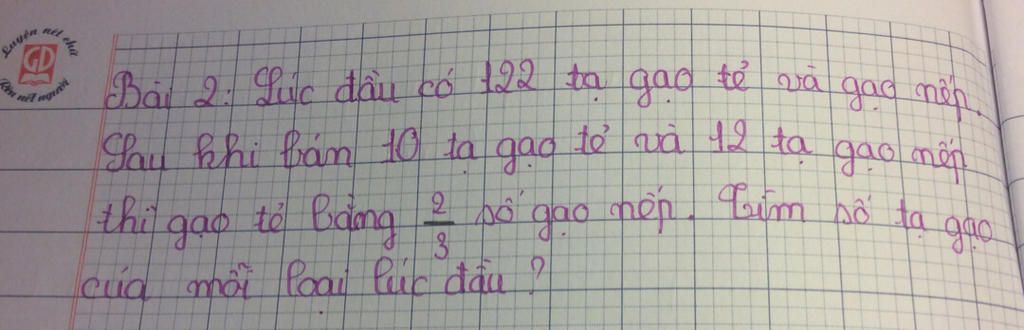 Luyện nét chữ
GD
Rèn nết người
Bài 2: Lúc đầu có 122 tạ gạo tẻ và gạo nếp.
Sau khi bán 10 tạ gạo tẻ và 12 tạ gạo nếp
thì gạo tẻ bằng 2/3 số gạo nếp. Tìm số tạ gạo
của mỗi loại lúc đầu ?